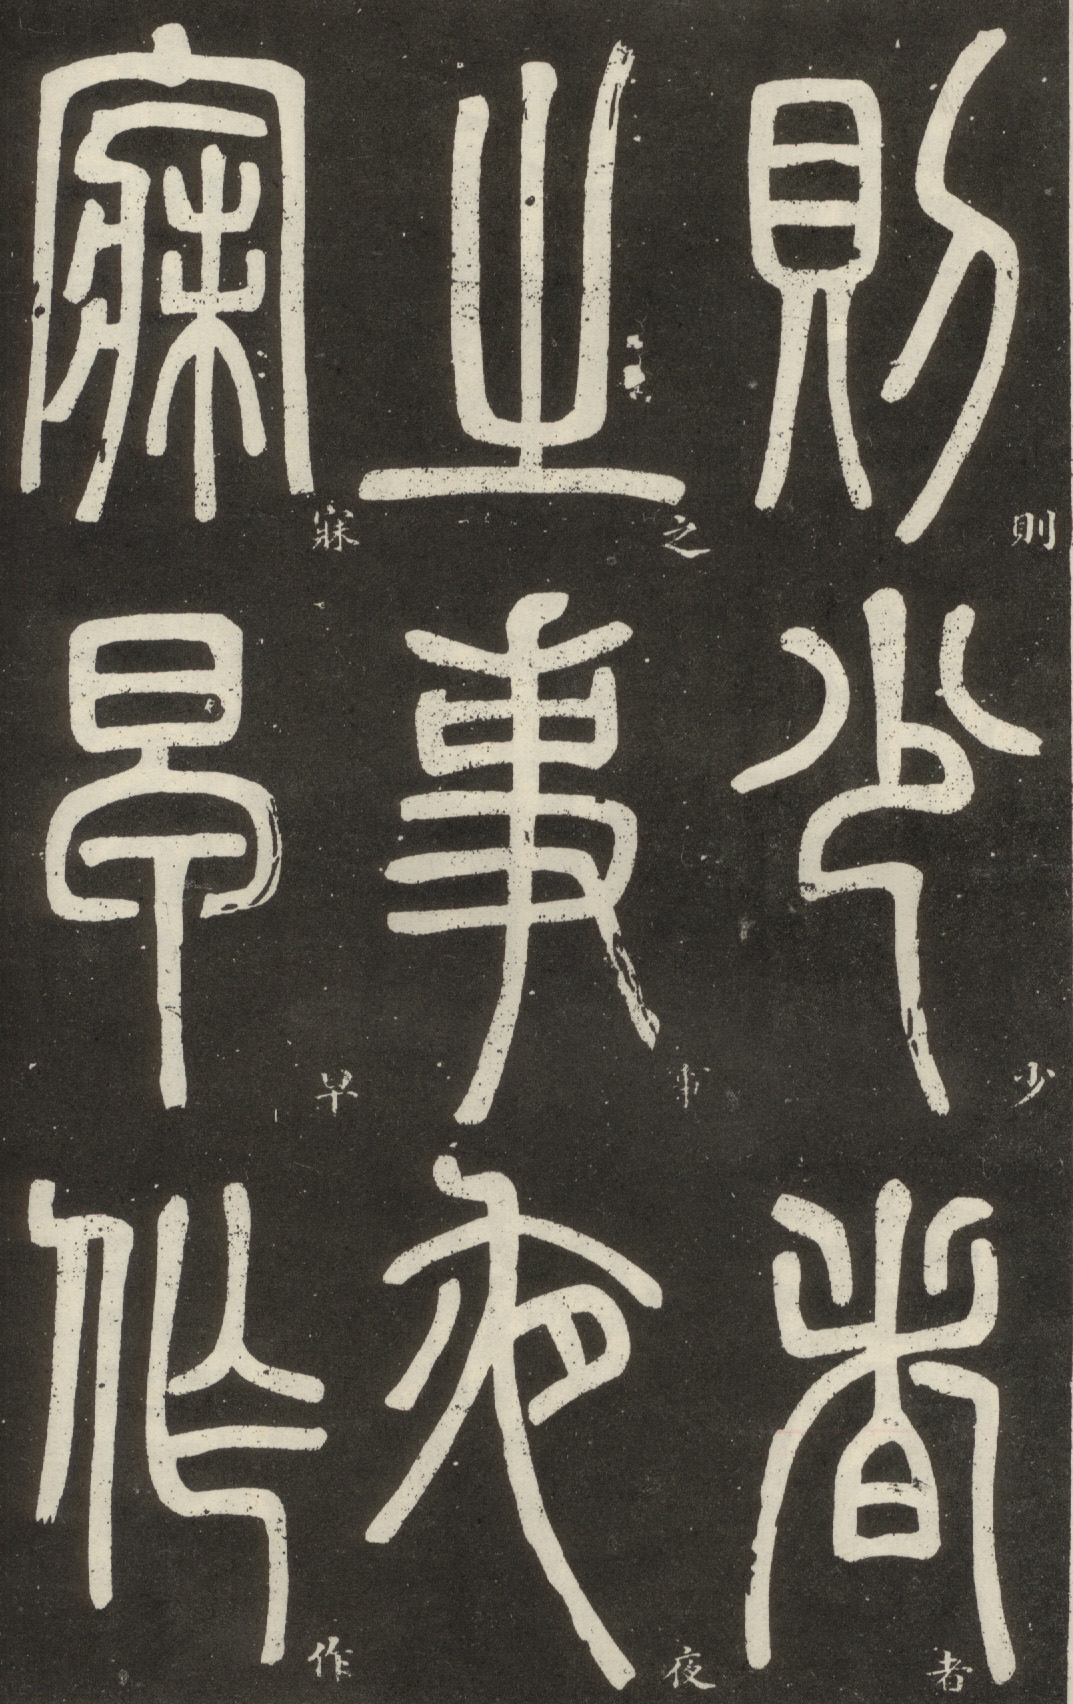 則少者
之事夜
寐早作